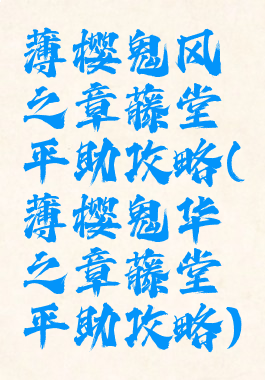 薄樱鬼风
之章藤堂
平助攻略(
薄樱鬼华
之章藤堂
平助攻略)